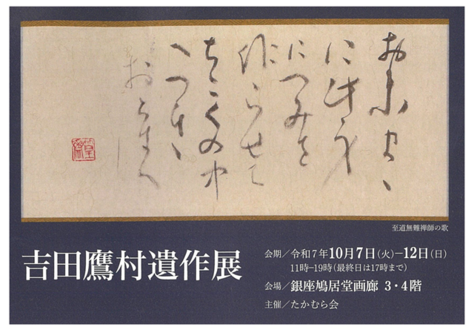 につみを
作らせて
ちこくの中
至道無難禅師の歌
吉田鷹村遺作展
会期／令和7年10月7日(火)–12日(日)
11時–19時(最終日は17時まで)
会場／銀座鳩居堂画廊 3・4階
主催／たかむら会